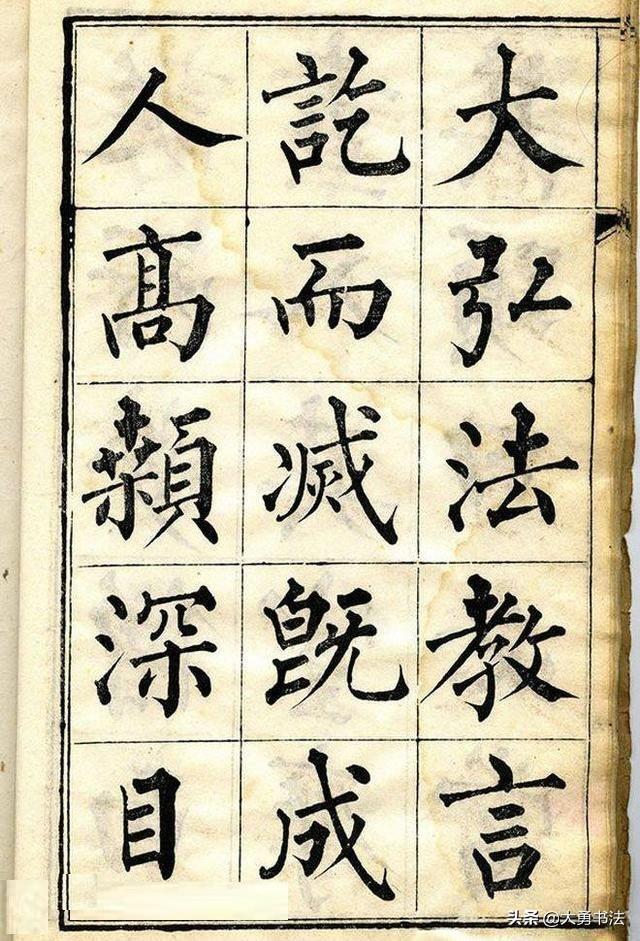 大弘法教言
訖而滅既成
人高顙深目
头条 @大勇书法